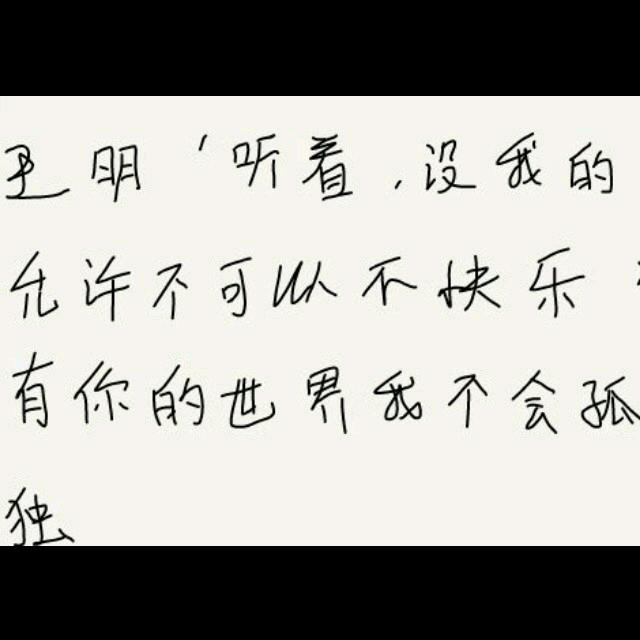 明 ' 听着,没我的
允许不可以不快乐
有你的世界我不会孤
独